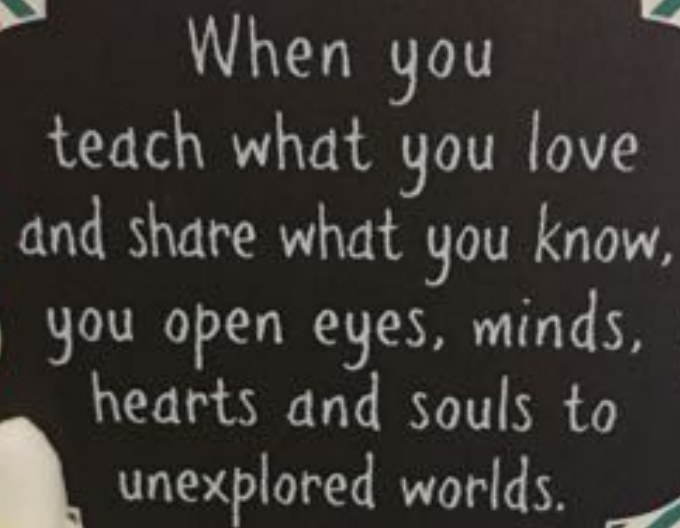 When you
teach what you love
and share what you know,
you open eyes, minds,
hearts and souls to
unexplored worlds.